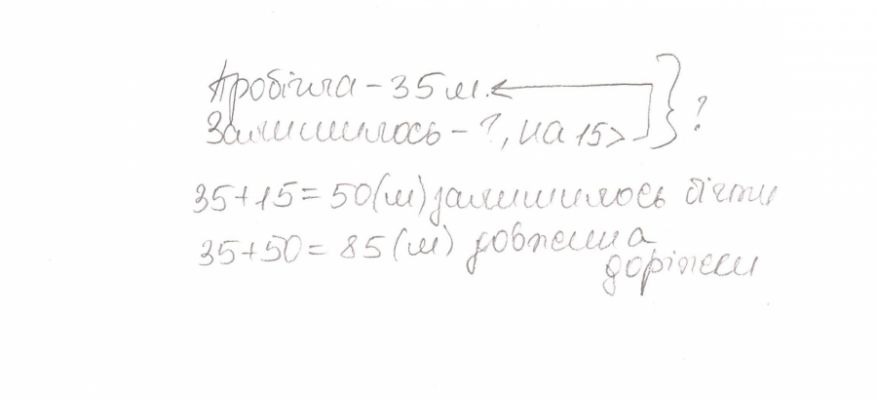 Пробігла - 35 м.
Залишилось - ?, на 15 >
?
35 + 15 = 50 (м) залишилось бігти
35 + 50 = 85 (м) довжина
доріжки